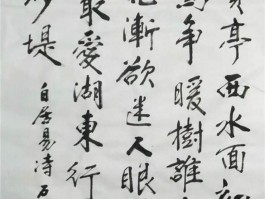 亭西水面初
争暖樹誰
花漸欲迷人眼
最愛湖東行
沙堤 白居易诗